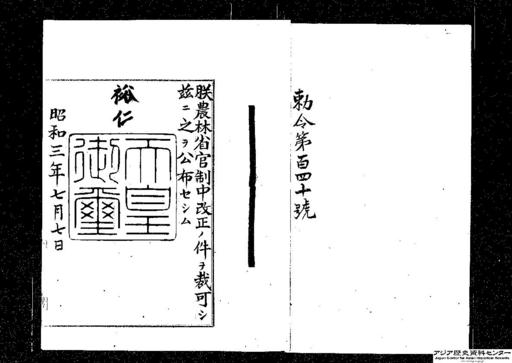 勅令第百四十號
朕農林省官制中改正ノ件ヲ裁可シ
玆ニ之ヲ公布セシム
裕仁
天皇
御璽
昭和三年七月七日
アジア歴史資料センター
Japan Center for Asian Historical Records